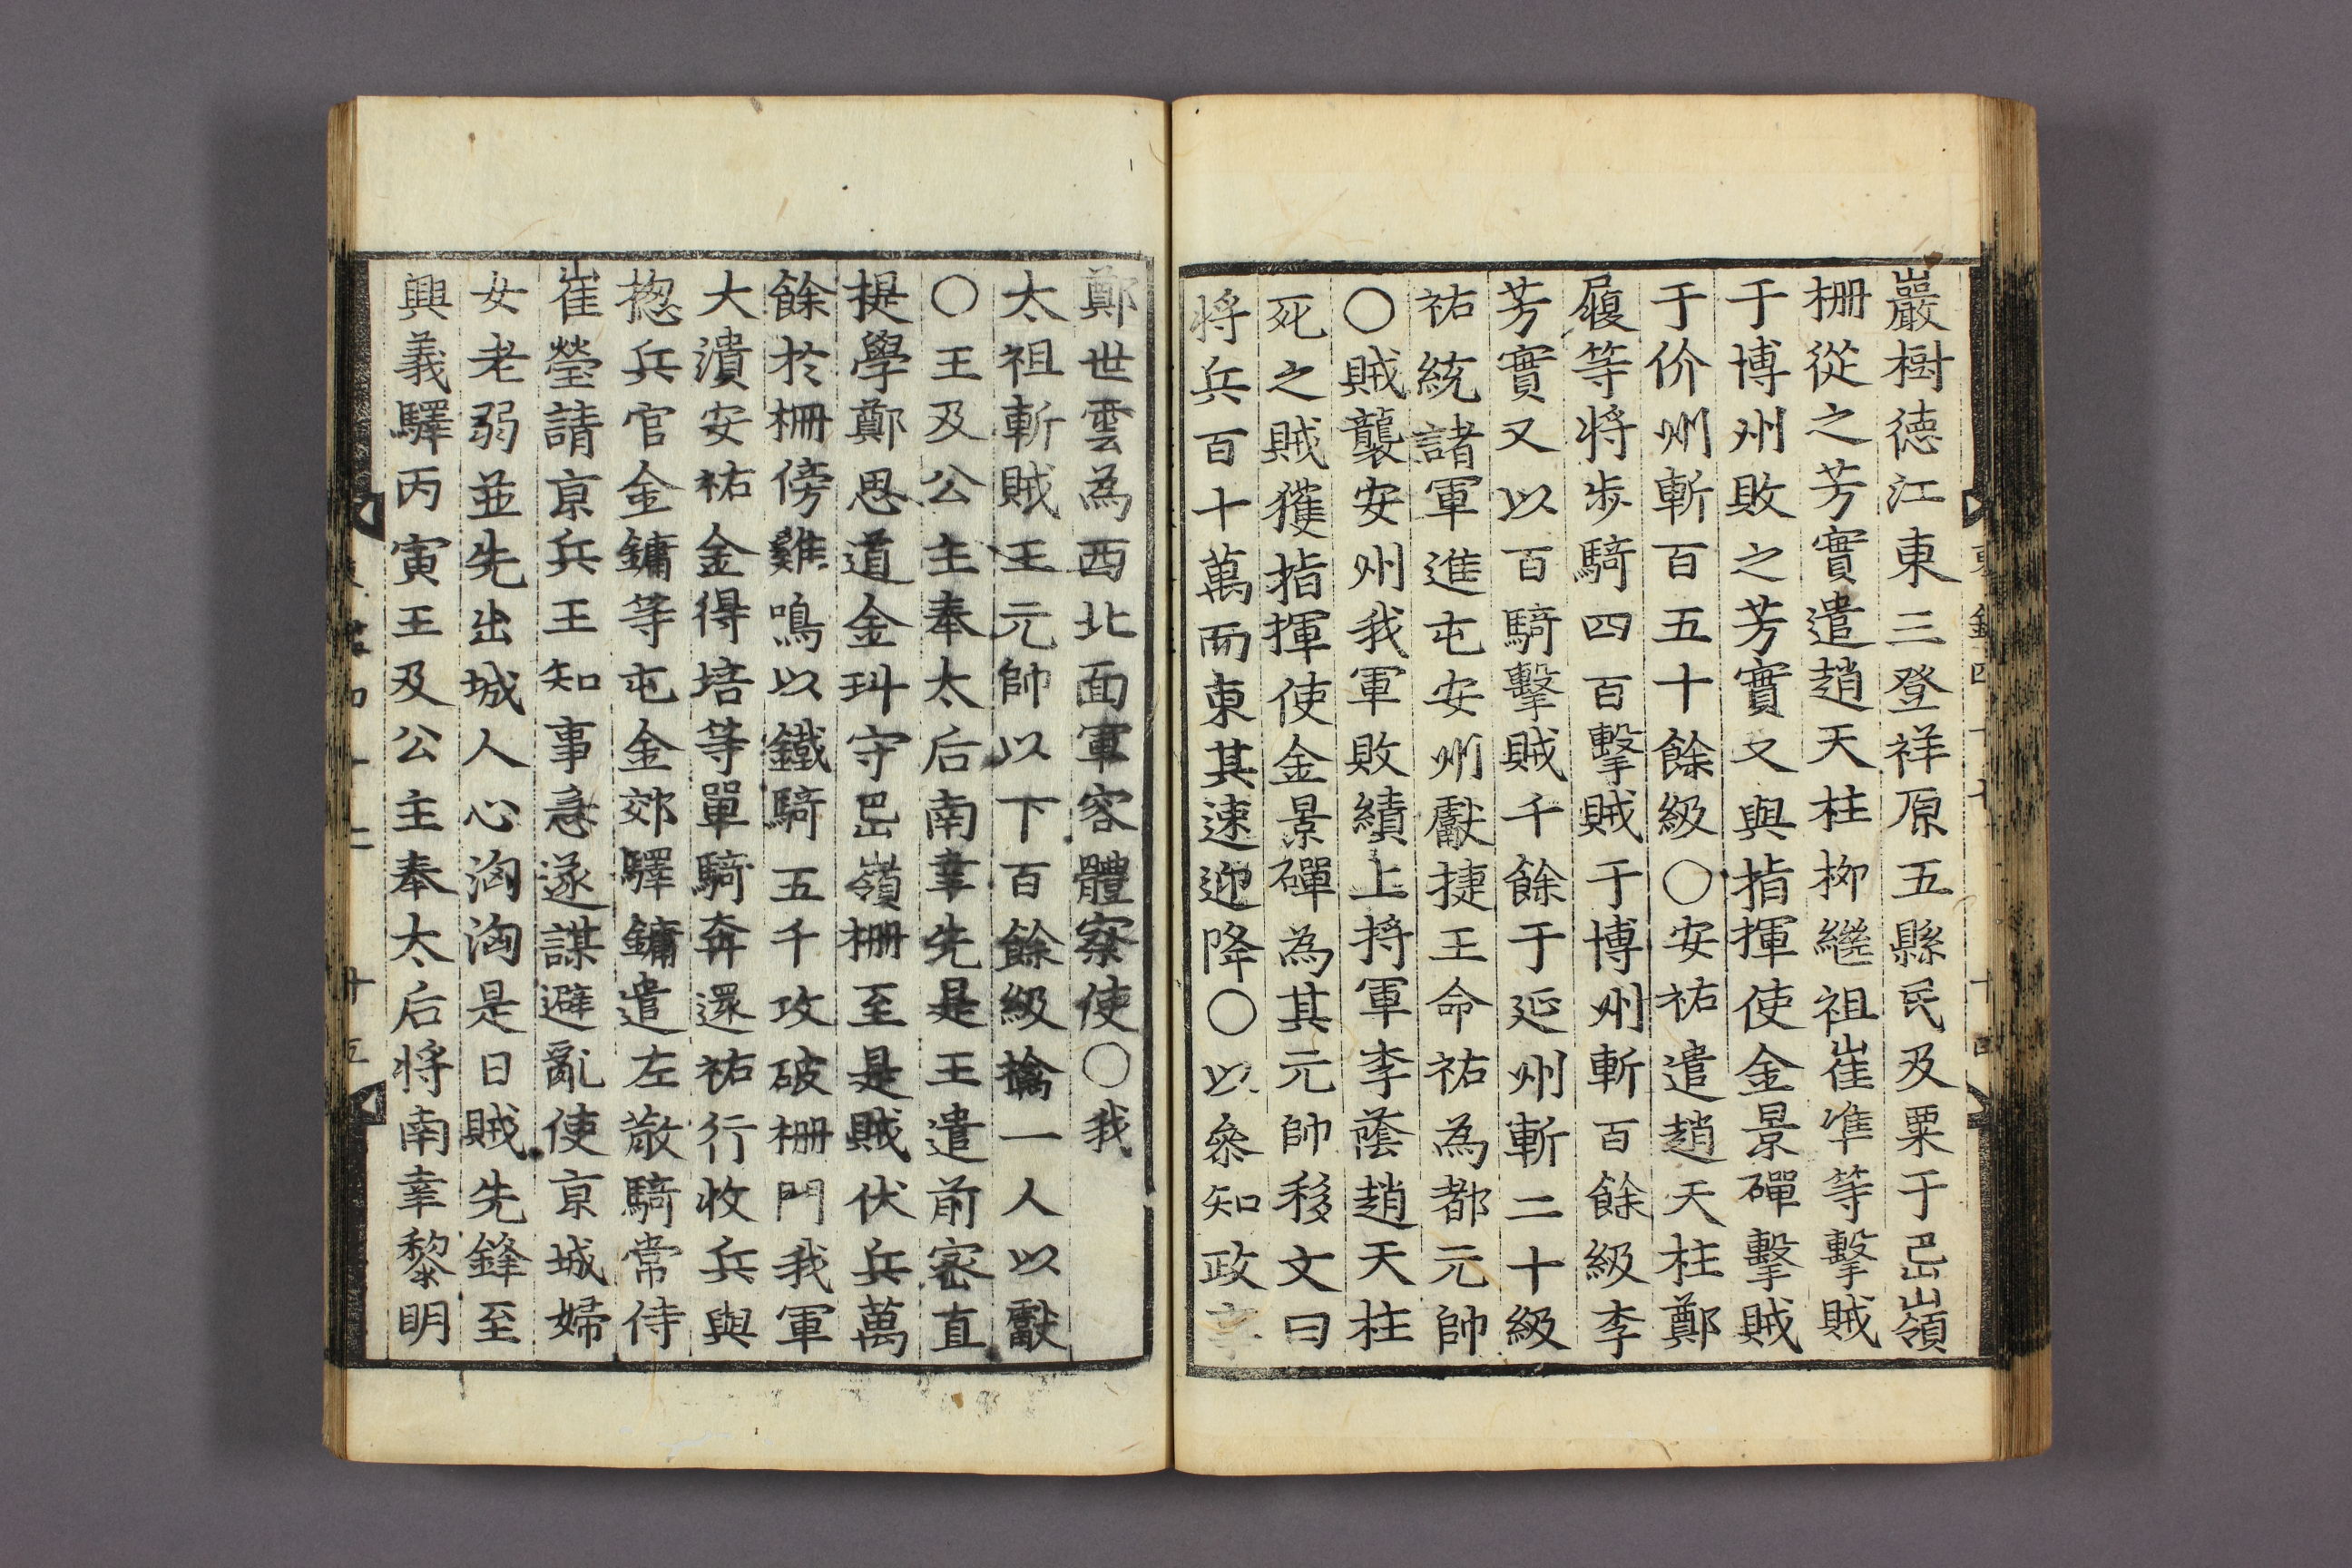 巖樹徳江東三登祥原五縣民及粟于岊嶺
柵從之芳實遣趙天柱柳繼祖崔準等擊賊
于博州敗之芳實又與指揮使金景磾擊賊
于价州斬百五十餘級〇安祐遣趙天柱鄭
履等将步騎四百擊賊于博州斬百餘級李
芳實又以百騎擊賊千餘于延州斬二十級
祐統諸軍進屯安州獻捷王命祐為都元帥
〇賊襲安州我軍敗績上将軍李蔭趙天柱
死之賊獲指揮使金景磾為其元帥移文曰
将兵百十萬而東其速迎降〇以叅知政
鄭世雲為西北面軍容體察使〇我
太祖斬賊王元帥以下百餘級擒一人以獻
〇王及公主奉太后南幸先是王遣前密直
提學鄭思道金玤守岊嶺柵至是賊伏兵萬
餘於柵傍雞鳴以鐵騎五千攻破柵門我軍
大潰安祐金得培等單騎奔還祐行收兵與
揔兵官金鏞等屯金郊驛鏞遣左散騎常侍
崔瑩請亰兵王知事急遂謀避亂使亰城婦
女老弱並先出城人心洶洶是日賊先鋒至
興義驛丙寅王及公主奉太后将南幸黎明